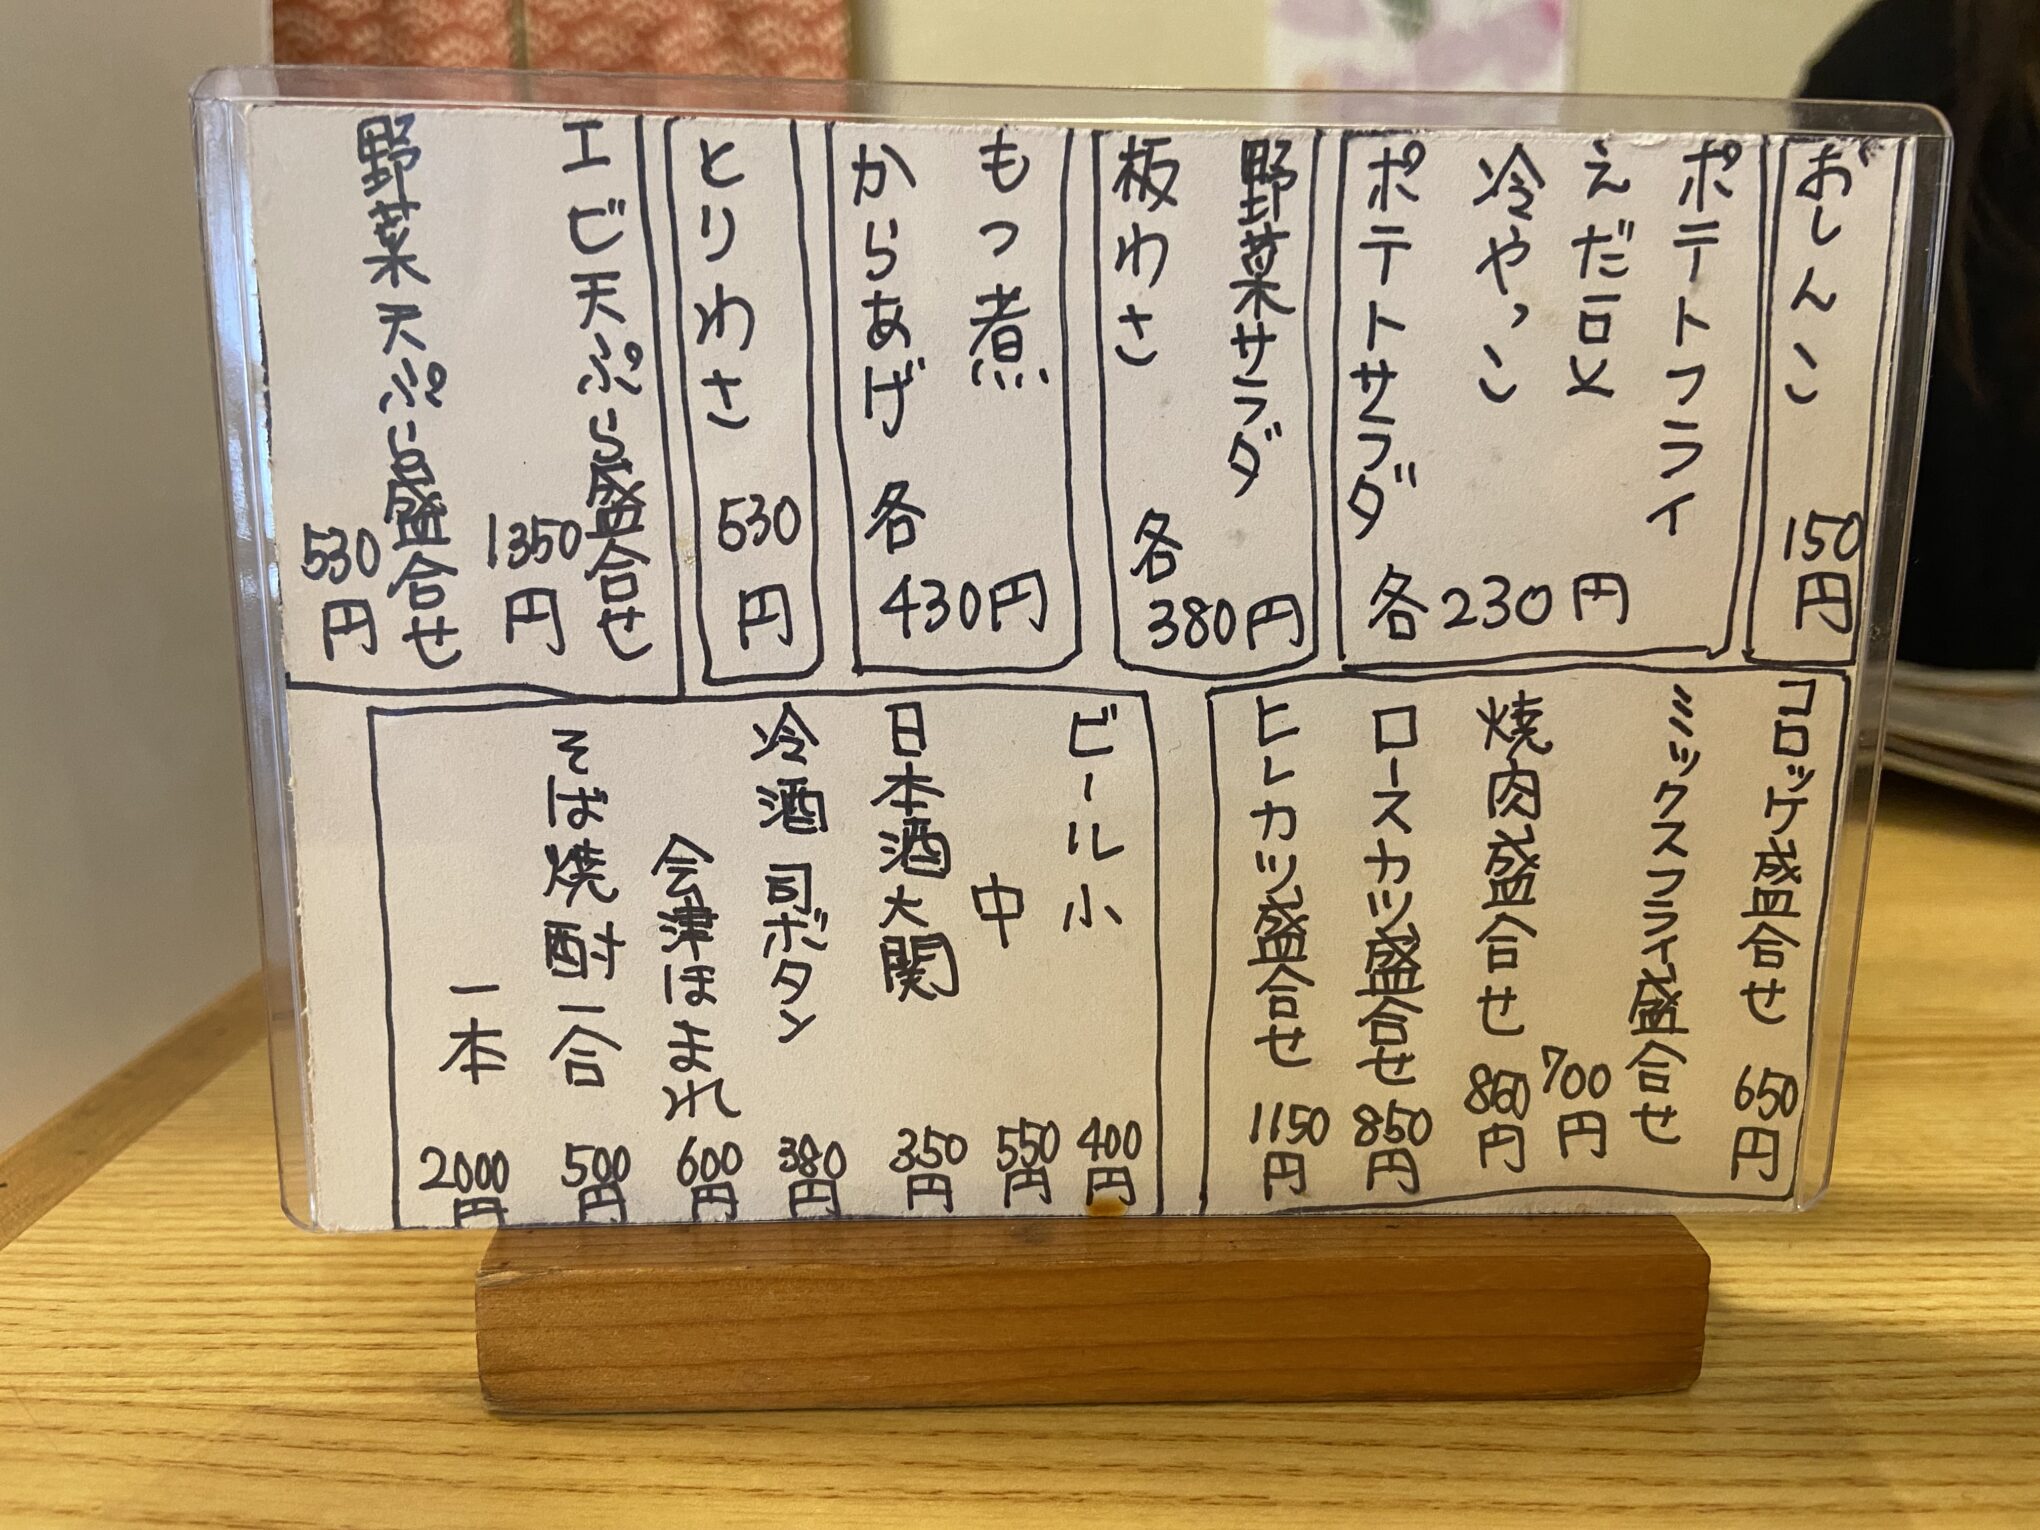 おしんこ 150円
ポテトフライ
えだ豆
冷やっこ
ポテトサラダ
各230円
野菜サラダ
板わさ
各380円
もつ煮
からあげ
各430円
とりわさ 530円
エビ天ぷら盛合せ 1350円
野菜天ぷら盛合せ 530円
コロッケ盛合せ 650円
ミックスフライ盛合せ 700円
焼肉盛合せ 860円
ロースカツ盛合せ 850円
ヒレカツ盛合せ 1150円
ビール小 400円
中 550円
日本酒大関 350円
冷酒 司ボタン 380円
会津ほまれ 600円
そば焼酎一合 500円
一本 2000円